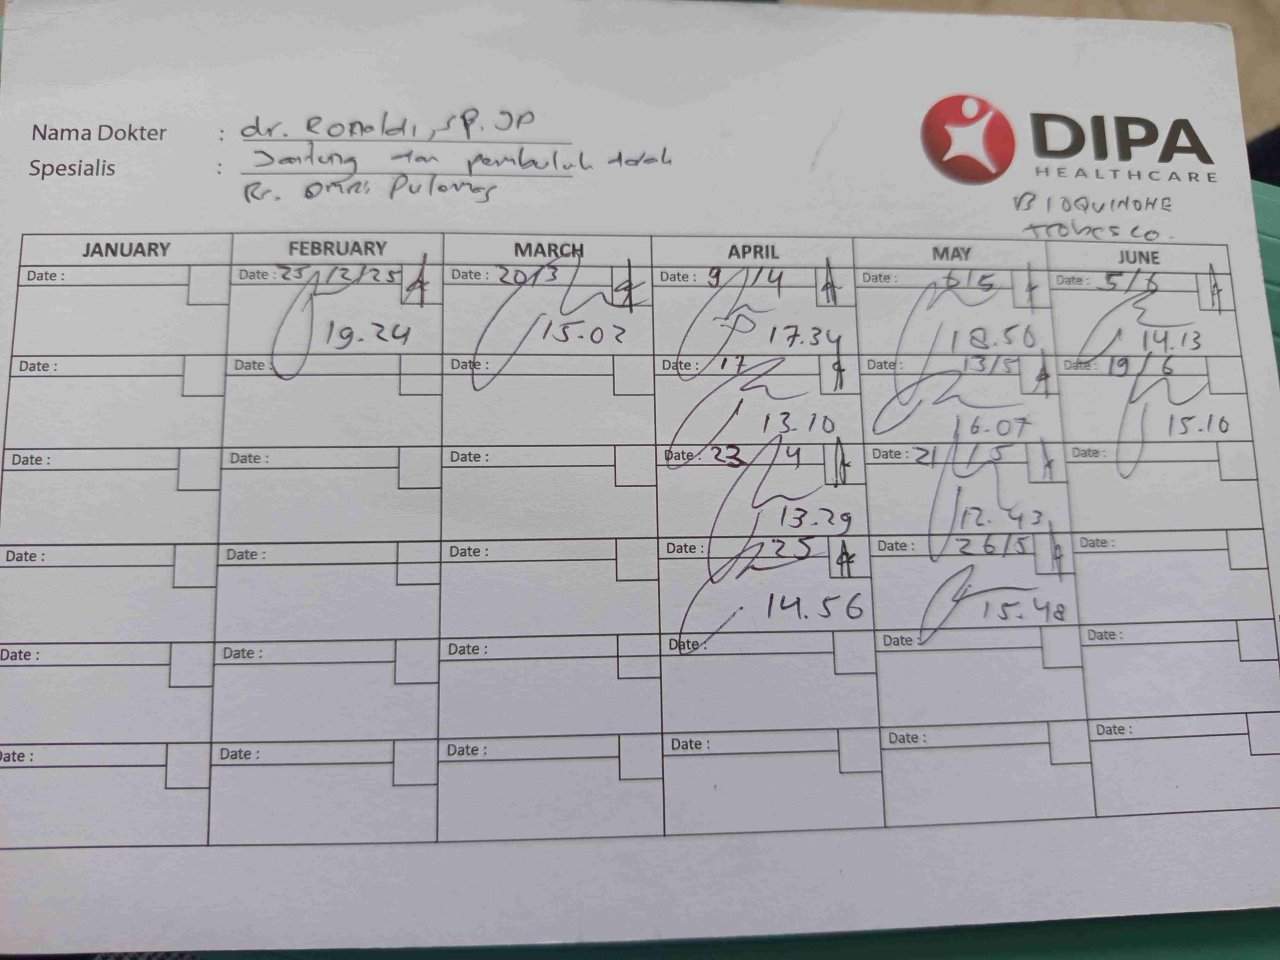 Nama Dokter : dr. Ronaldi, SP. JP
Spesialis : Jantung dan pembuluh darah
Rs. OMNI Pulomas
DIPA
HEALTHCARE
BIOQUINONE
JANUARY FEBRUARY MARCH APRIL MAY JUNE
Date : Date : 25/2/25 Date : 20/3 Date : 9/4 Date : 6/5 Date : 5/6
19.24 15.02 17.34 18.50 14.13
Date : Date : Date : Date : 17 Date : 13/5 Date : 19/6
13.10 16.07 15.10
Date : Date : Date : Date : 23 4 Date : 21/5 Date :
13.29 12.43
Date : Date : Date : Date : 25 Date : 26/5 Date :
14.56 15.48
Date : Date : Date : Date : Date : Date :
Date : Date : Date : Date : Date : Date :